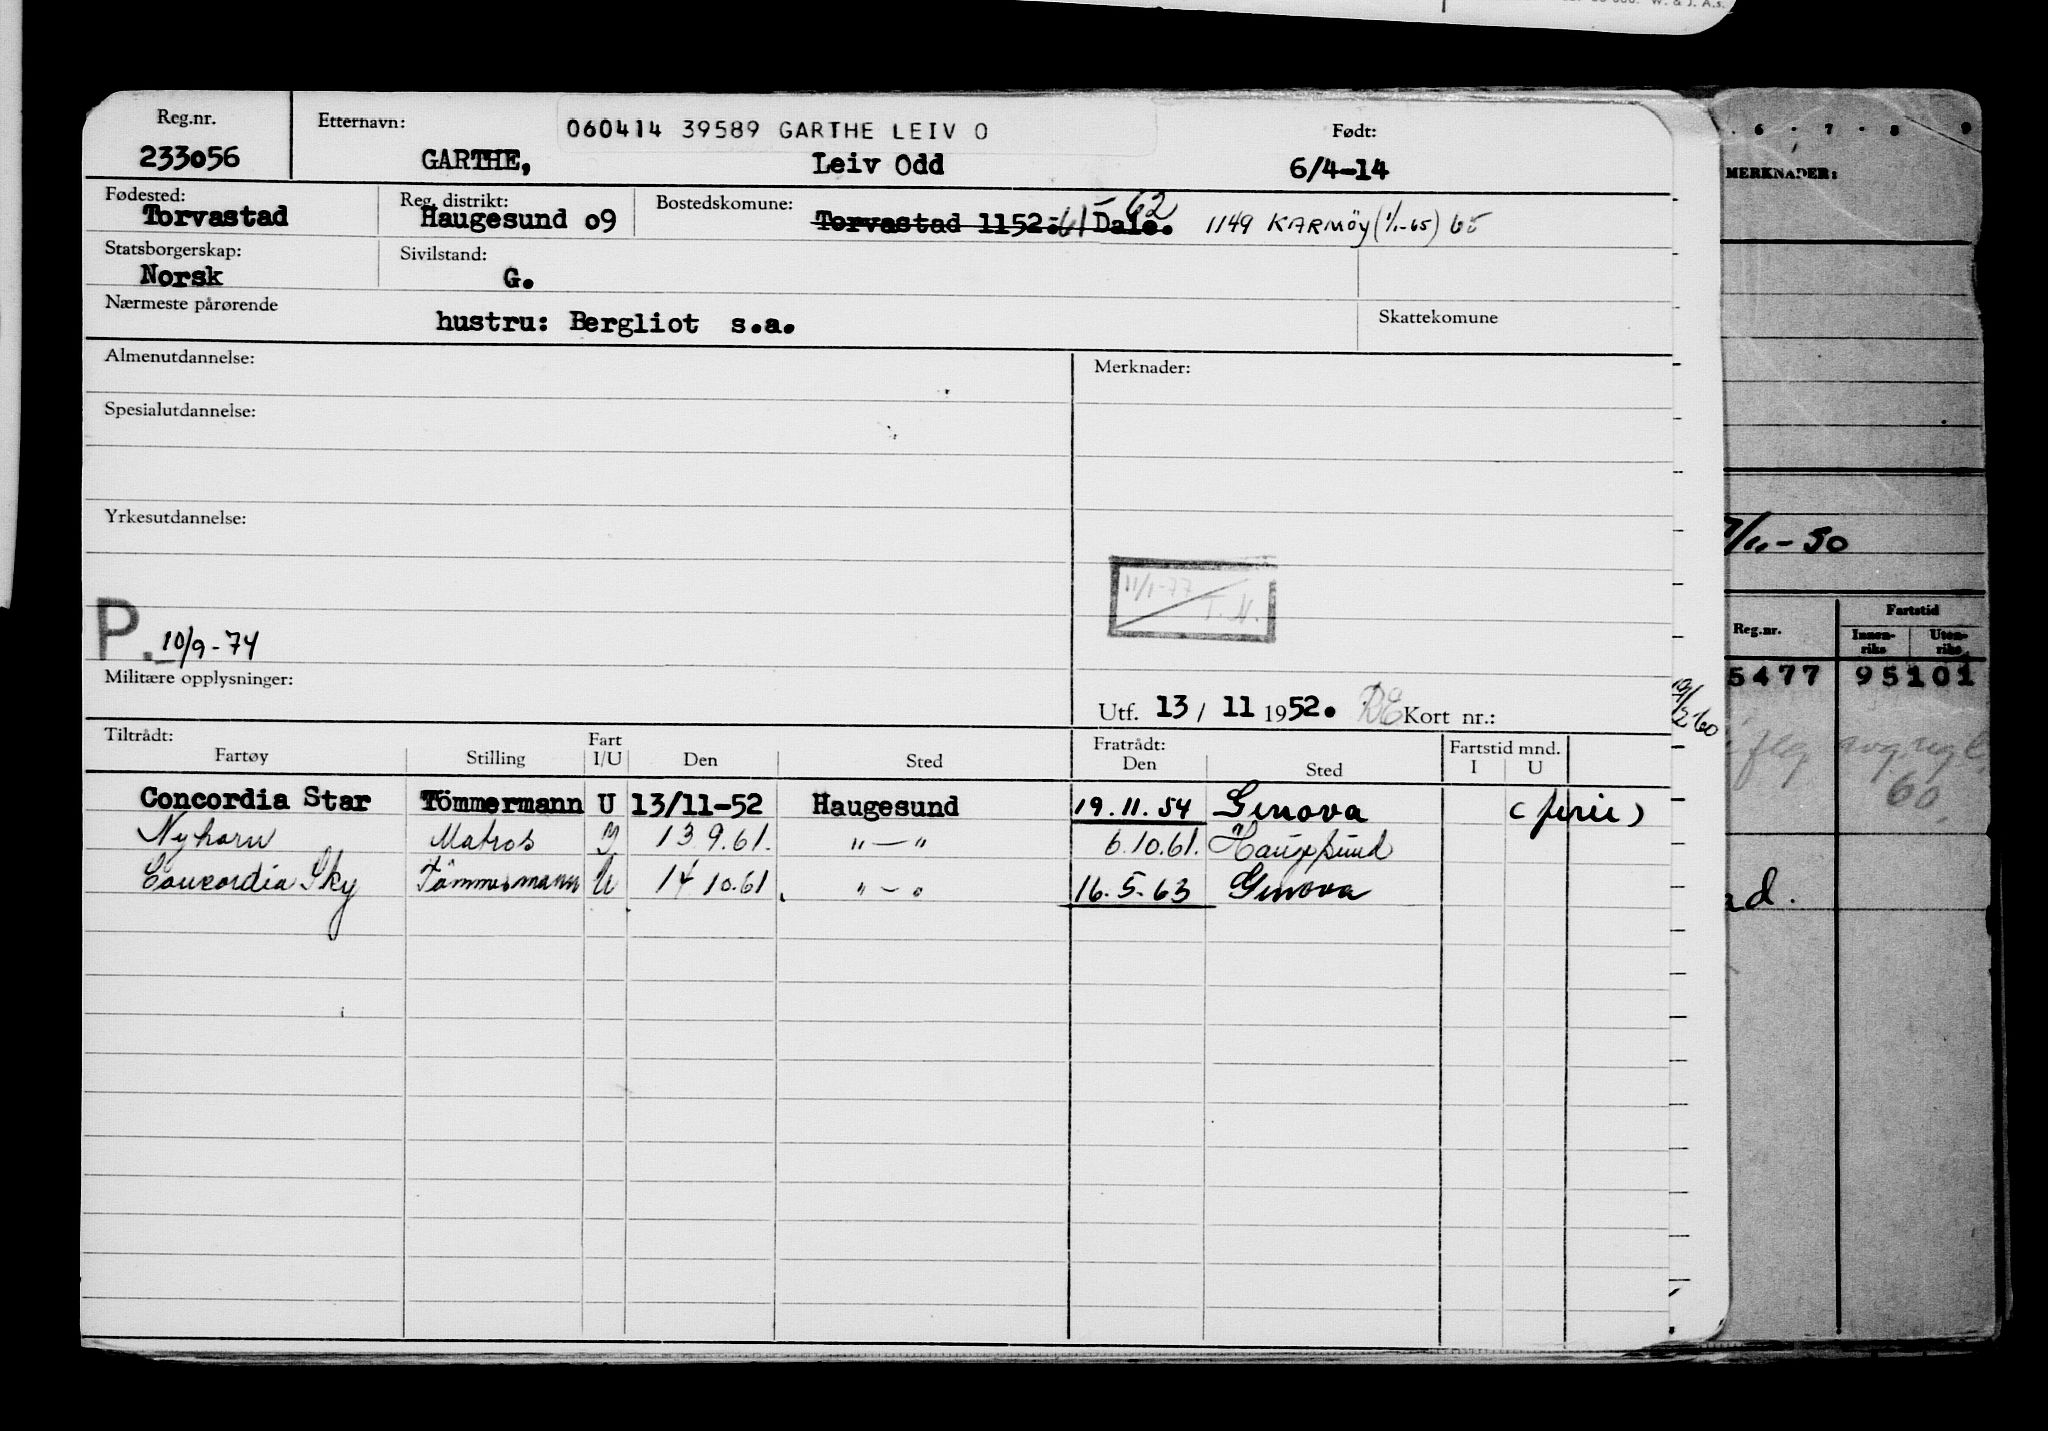 W. & J. A.s.
Reg.nr. Etternavn: 060414 39589 GARTHE LEIV O Født:
233056 GARTHE, Leiv Odd 6/4-14
Fødested: Reg. distrikt: Bostedskomune: 62
Torvastad Haugesund 09 Torvastad 1152.-61 Dale. 1149 KARMÖY (1/1-65) 65
Statsborgerskap: Sivilstand:
Norsk G.
Nærmeste pårørende Skattekomune
hustru: Bergliot s.a.
Almenutdannelse: Merknader:
Spesialutdannelse:
Yrkesutdannelse:
11/1-77 T. N.
P. 10/9-74
Militære opplysninger:
Utf. 13 / 11 1952. Kort nr.:
Tiltrådt: Fart Fratrådt: Fartstid mnd.
Fartøy Stilling I/U Den Sted Den Sted I U
Concordia Star Tömmermann U 13/11-52 Haugesund 19.11.54 Genova (ferie)
Nyhorn Matros 13 9.61. "—" 6.10.61. Haugesund
Concordia Sky Tömmermann U 14 10.61 "—" 16.5.63 Genova
6 7 8 9
MERKNADER:
/11-50
Fartstid
Reg.nr. Innen-riks Uten-riks
5477 95101
60
ad.